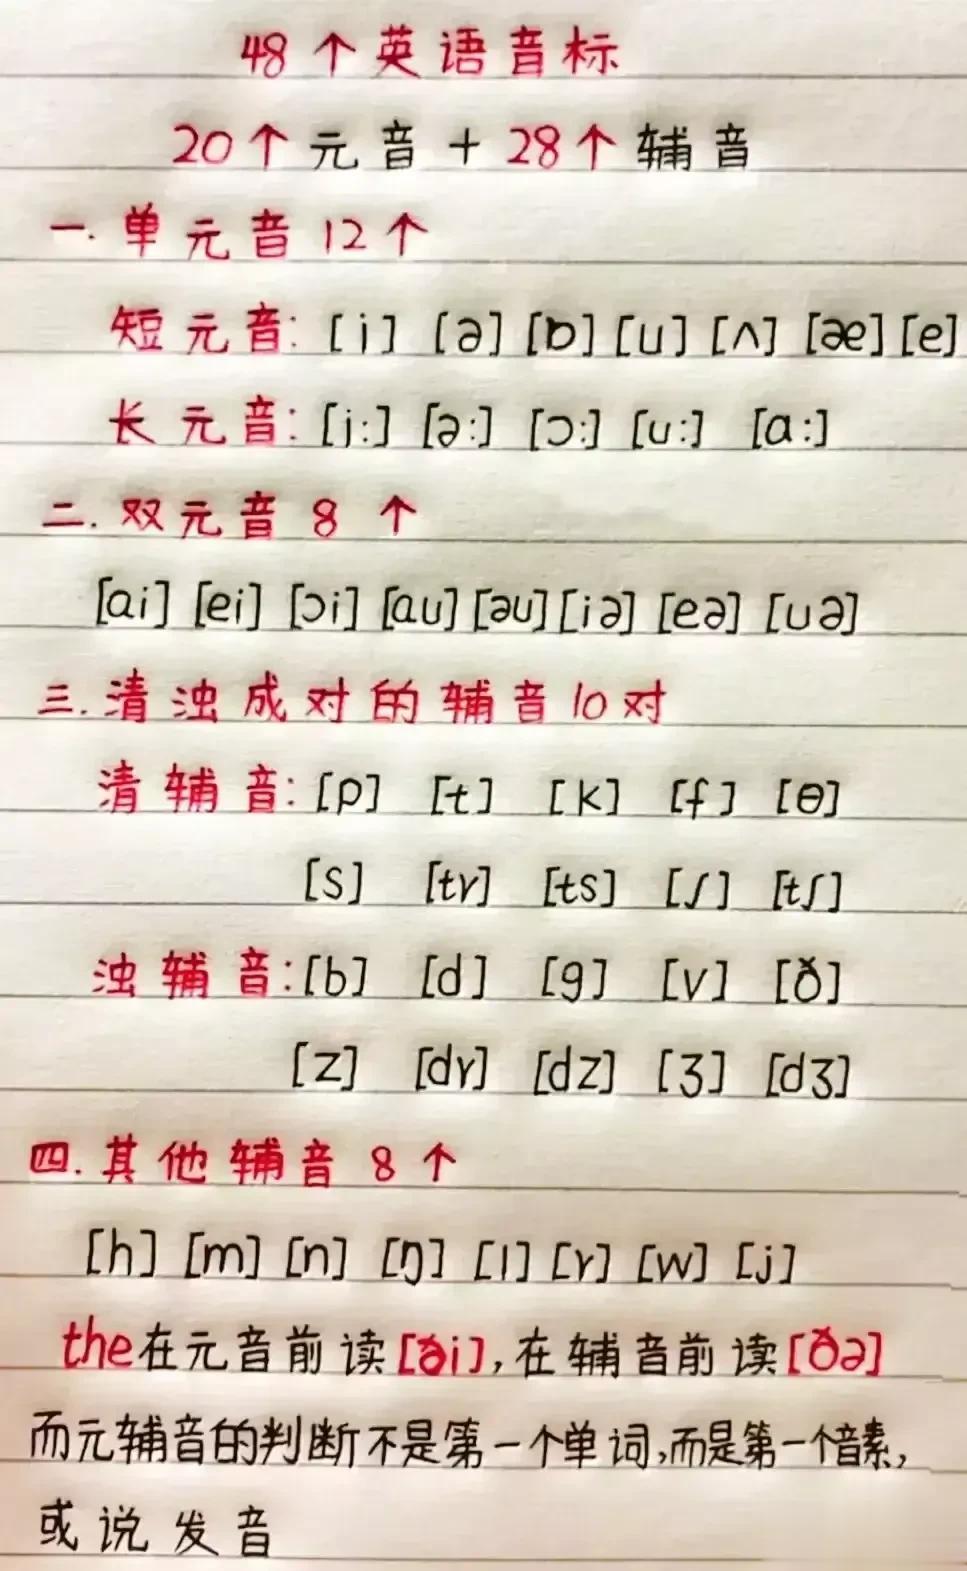 48个英语音标
20个元音+28个辅音
一.单元音12个
短元音:[i] [ə] [ɒ] [u] [ʌ] [æ] [e]
长元音:[i:] [ə:] [ɔ:] [u:] [ɑ:]
二.双元音8个
[ai] [ei] [ɔi] [au] [əu] [iə] [eə] [uə]
三.清浊成对的辅音10对
清辅音:[p] [t] [k] [f] [θ]
[s] [tr] [ts] [ʃ] [tʃ]
浊辅音:[b] [d] [g] [v] [ð]
[z] [dr] [dz] [ʒ] [dʒ]
四.其他辅音8个
[h] [m] [n] [ŋ] [l] [r] [w] [j]
the在元音前读[ði],在辅音前读[ðə]
而元辅音的判断不是第一个单词,而是第一个音素,
或说发音